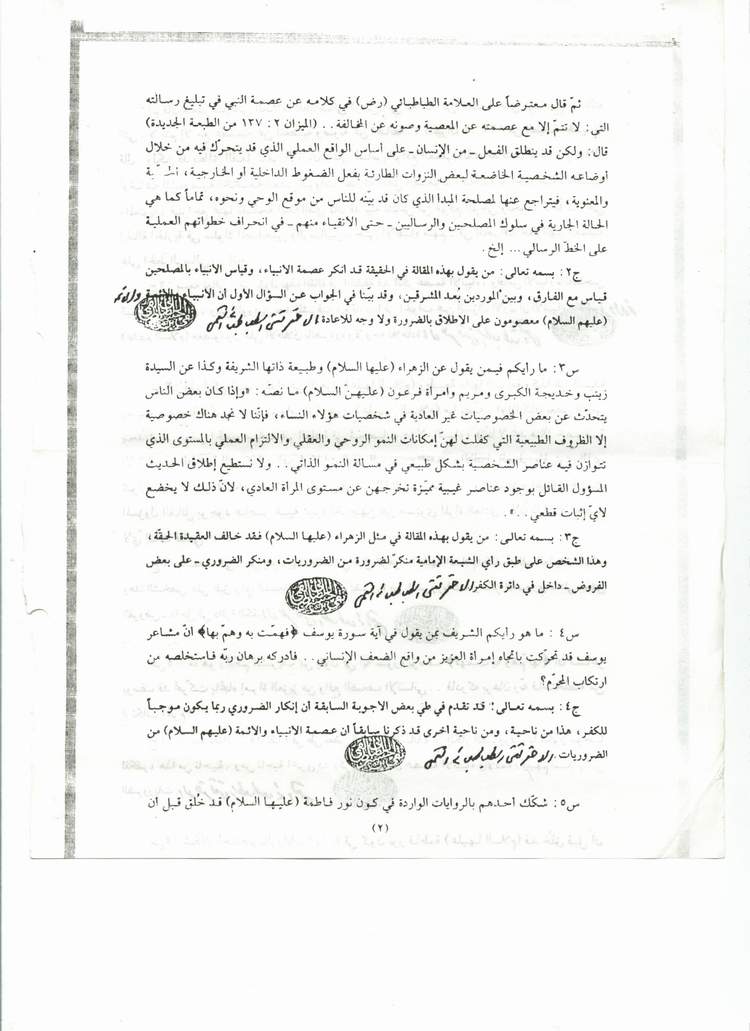 ثمّ قال معترضاً على العلامة الطباطبائي (رض) في كلامه عن عصمة النبي في تبليغ رسالته
التي: لا تتمّ إلا مع عصمته عن المعصية وصونه عن المخالفة.. (الميزان ٢: ١٣٧ من الطبعة الجديدة)
قال: ولكن قد ينطلق الفعل ـ من الإنسان ـ على أساس الواقع العملي الذي قد يتحرّك فيه من خلال
أوضاعه الشخصية الخاضعة لبعض النزوات الطارئة بفعل الضغوط الداخلية أو الخارجية،
والمعنوية، فيتراجع عنها لمصلحة المبدأ الذي كان قد بيّنه للناس من موقع الوحي ونحوه، تماماً كما هي
الحالة الجارية في سلوك المصلحين والرساليين ـ حتى الأتقياء منهم ـ في انحراف خطواتهم العملية
على الخطّ الرسالي... إلخ.
ج٢: بسمه تعالى: من يقول بهذه المقالة في الحقيقة قد أنكر عصمة الأنبياء، وقياس الأنبياء بالمصلحين
قياس مع الفارق، وبين الموردين بُعد المشرقين، وقد بيّنا في الجواب عن السؤال الأول أن الأنبياء والأئمة
(عليهم السلام) معصومون على الاطلاق بالضرورة ولا وجه للاعادة. الاحقر تقي الطباطبائي القمي
س٣: ما رأيكم فيمن يقول عن الزهراء (عليها السلام) وطبيعة ذاتها الشريفة وكذا عن السيدة
زينب وخديجة الكبرى ومريم وامرأة فرعون (عليهنّ السلام) ما نصّه: «وإذا كان بعض الناس
يتحدّث عن بعض الخصوصيات غير العادية في شخصيات هؤلاء النساء، فإنّنا لا نجد هناك خصوصية
إلا الظروف الطبيعية التي كفلت لهنّ إمكانات النمو الروحي والعقلي والالتزام العملي بالمستوى الذي
تتوازن فيه عناصر الشخصية بشكل طبيعي في مسألة النمو الذاتي.. ولا نستطيع إطلاق الحديث
المسؤول القائل بوجود عناصر غيبية مميّزة تخرجهن عن مستوى المرأة العادي، لأنّ ذلك لا يخضع
لأيّ إثبات قطعي..».
ج٣: بسمه تعالى: من يقول بهذه المقالة في مثل الزهراء (عليها السلام) فقد خالف العقيدة الحقّة،
وهذا الشخص على طبق رأي الشيعة الإمامية منكرٌ لضرورة من الضروريات، ومنكر الضروري ـ على بعض
الفروض ـ داخل في دائرة الكفر. الاحقر تقي الطباطبائي القمي
س٤: ما هو رأيكم الشريف بمن يقول في آية سورة يوسف ﴿فهمّت به وهمّ بها﴾ أنّ مشاعر
يوسف قد تحرّكت باتجاه إمرأة العزيز من واقع الضعف الإنساني.. فأدركه برهان ربّه فاستخلصه من
ارتكاب المحرّم؟
ج٤: بسمه تعالى؛ قد تقدم في طي بعض الأجوبة السابقة أن إنكار الضروري ربما يكون موجباً
للكفر، هذا من ناحية، ومن ناحية أخرى قد ذكرنا سابقاً أن عصمة الأنبياء والأئمة (عليهم السلام) من
الضروريات. الاحقر تقي الطباطبائي القمي
س٥: شكّك أحدهم بالروايات الواردة في كون نور فاطمة (عليها السلام) قد خُلق قبل أن
(٢)